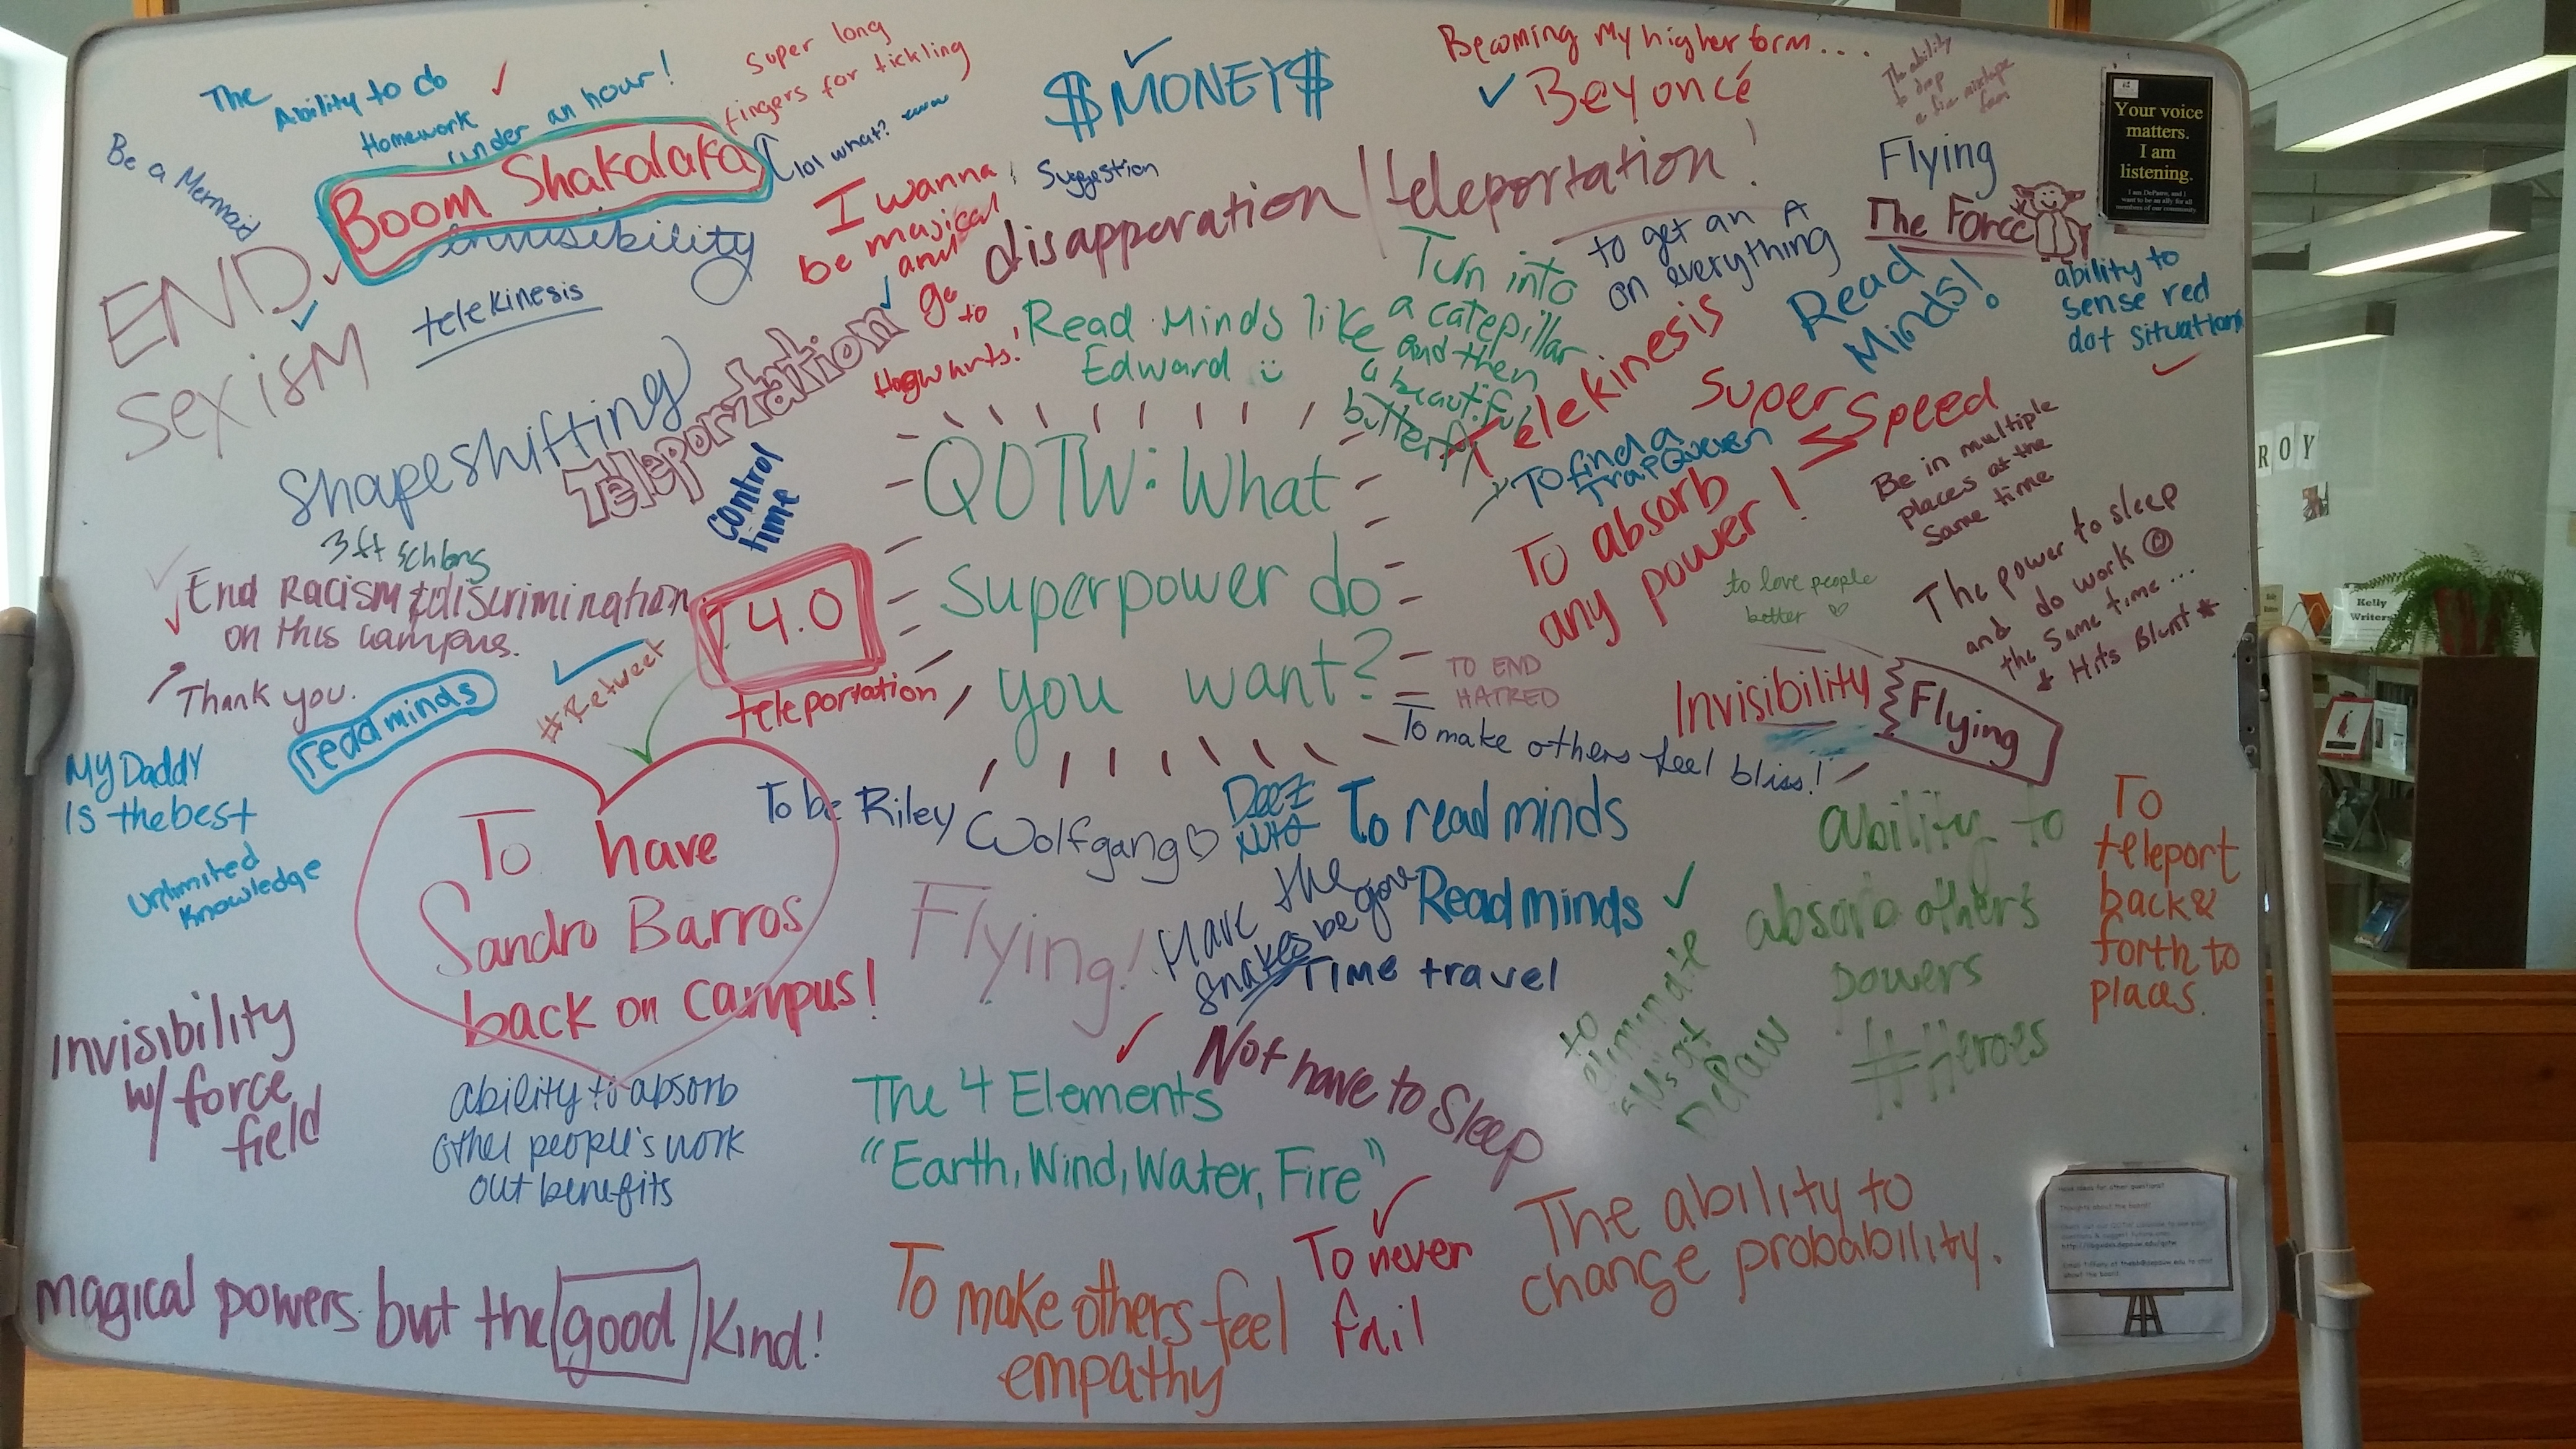 The
Ability to do
Homework
under an hour!
super long
fingers for tickling
lol what?
Be a Mermaid
Boom Shakalaka
$MONEY$
Suggestion
Becoming My higher form....
Beyoncé
The ability
to drop
a fire mixtape
Your voice
matters.
I am
listening.
I am DePauw, and I
want to be an ally for all
members of our community
invisibility
telekinesis
END
SEXISM
I wanna
be magical
and
go
to
Hogwarts!
disapparation/teleportation!
Flying
The Force
to get an A
on everything
Turn into
a catepillar
and then
a beautiful
butterfly
Read Minds like
Edward
Read
Minds!
ability to
sense red
dot situations
Telekinesis
Super
Speed
Shapeshifting
Teleportation
Control
time
3 ft schlong
QOTW: What
superpower do
you want?
To find a
Trap Queen
To absorb
any power!
Be in multiple
places at the
Same time
to love people
better
The power to sleep
and do work
the same time...
* Hits Blunt *
End Racism & discrimination
on this campus.
Thank you.
4.0
teleportation
#Retweet
read minds
TO END
HATRED
To make others feel bliss!
Invisibility
Flying
My Daddy
is the best
Unlimited
Knowledge
To have
Sandro Barros
back on campus!
To be Riley
Wolfgang
Deez
Nuts
To read minds
Flying!
Have the
snakes be gone
Read minds
Time travel
ability to
absorb others
powers
#Heroes
To
teleport
back &
forth to
places.
to
eliminate
at
DePauw
Invisibility
w/ force
field
ability to absorb
other people's work
out benefits
The 4 Elements
"Earth, Wind, Water, Fire"
Not have to Sleep
Magical powers but the good Kind!
To make others feel
empathy
To never
fail
The ability to
change probability.
Have ideas for other questions?
Thoughts about the board?
ROY
Kelly
Writers